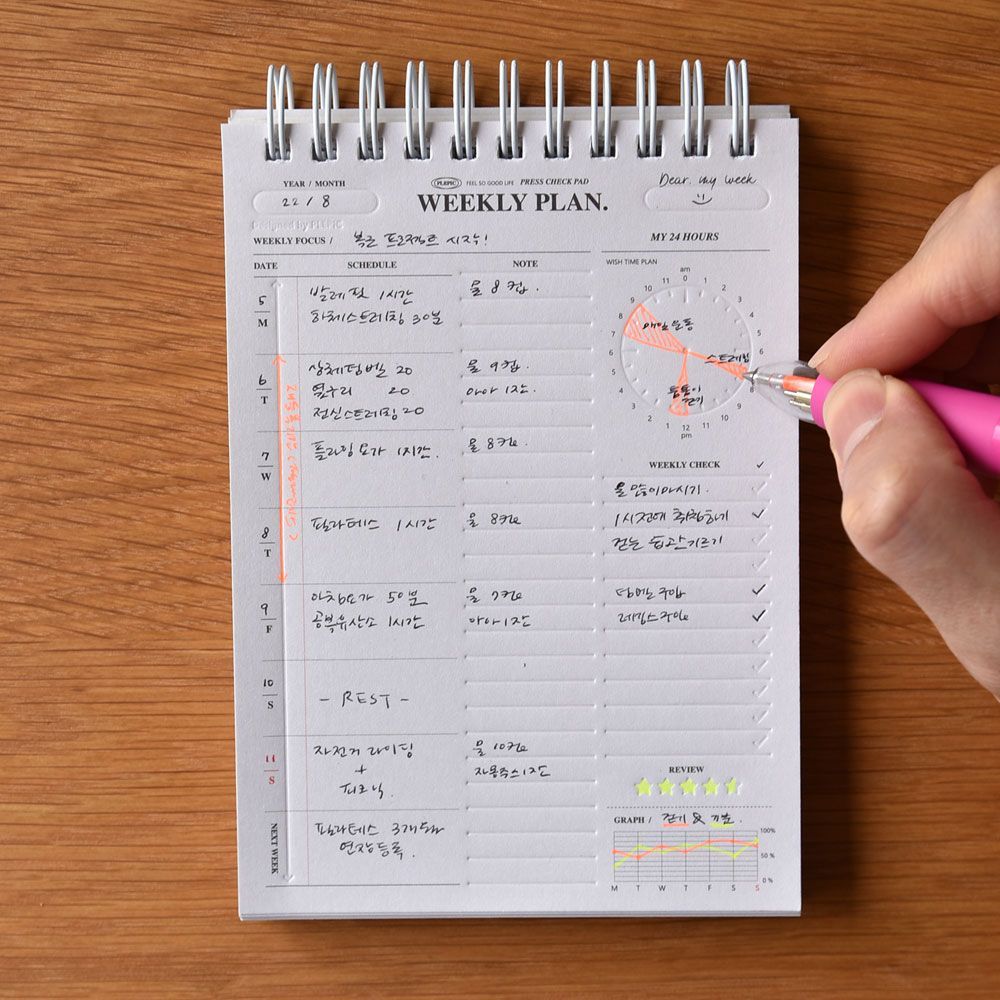 YEAR / MONTH
22 / 8
PLEPIC FEEL SO GOOD LIFE PRESS CHECK PAD
WEEKLY PLAN.
Dear. my week
Designed by PLEPIC
WEEKLY FOCUS / 복근 프로젝트 시작!
DATE SCHEDULE NOTE
5
M
발레핏 1시간
하체스트레칭 30분
물 8컵.
6
T
상체덤벨 20
옆구리 20
전신스트레칭 20
물 9컵.
아아 1잔.
7
W
플라잉요가 1시간.
물 8컵
8
T
필라테스 1시간
물 8컵
9
F
아침요가 50분
공복유산소 1시간
물 7컵
아아 1잔
10
S
- REST -
11
S
자전거 라이딩
+
피크닉.
물 10컵
1잔
NEXT WEEK
필라테스 3개월
연장등록.
MY 24 HOURS
WISH TIME PLAN
am
0
1
2
3
4
5
6
8
9
10
11
12
pm
1
2
3
4
5
6
7
8
9
10
11
매일운동
스트레칭
틈틈이
걷기
WEEKLY CHECK
물 많이마시기.
1시전에 취침하기
걷는 습관 기르기
덤벨 구입
레깅스구입
REVIEW
GRAPH / 걷기 & 기분.
100%
50 %
0 %
M T W T F S S